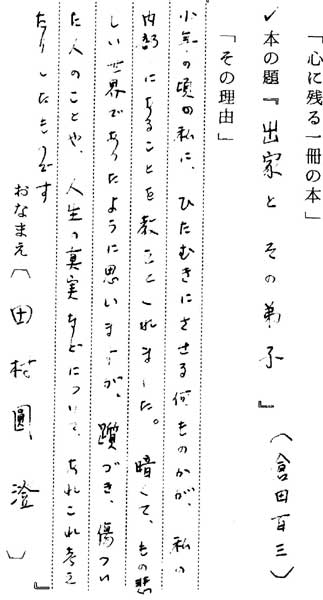 「心に残る一冊の本」
✓本の題『出家とその弟子』（倉田百三）
「その理由」
少年の頃の私に、ひたむきにさせる何ものかが、私の
内部にあることを教えてくれました。暗くて、もの悲
しい世界でありたように思いますが、躓づき、傷つい
た人のことや、人生の真実などについて、あれこれ考え
たりしたものです
おなまえ（田村圓澄）』